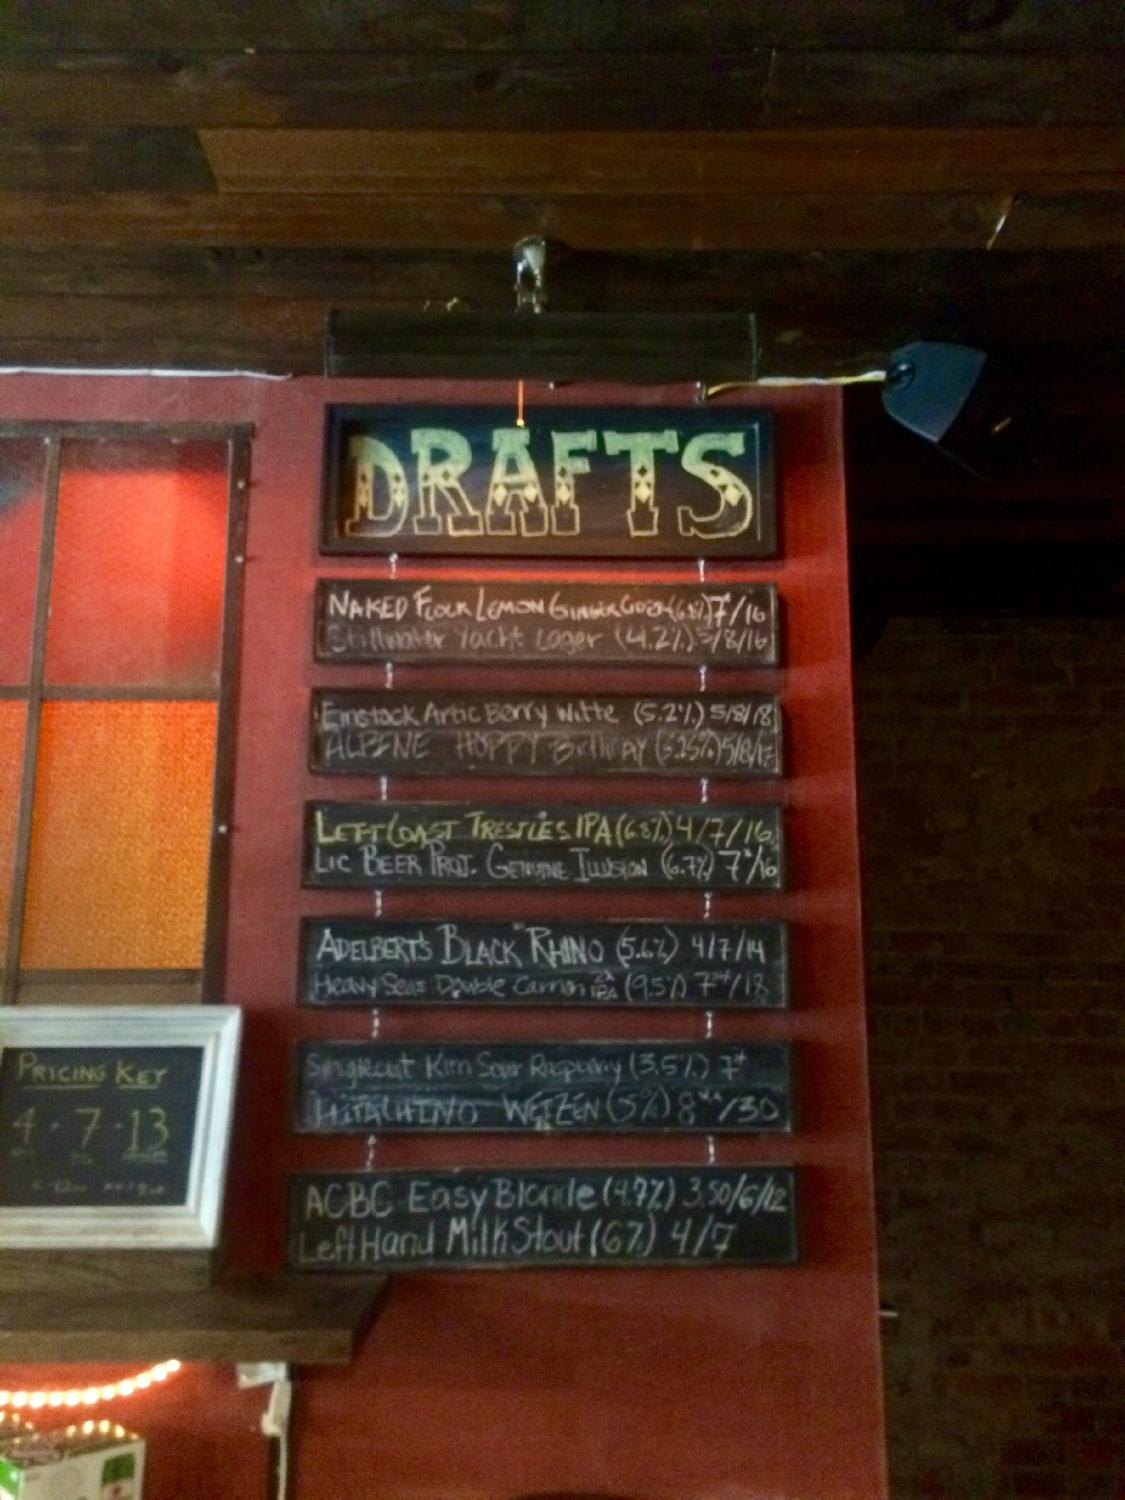 DRAFTS
NAKED FLOCK LEMON GINGER (6.8%) 7*/16
Stillwater Yacht Lager (4.2%) 5/8/16
Einstock Artic Berry Witte (5.2%) 5/8/18
ALPINE HOPPY Birthday (5.25%) 5/8/18
LEFT COAST TRESTLES IPA (6.8%) 4/7/16
LIC BEER PROJ. GENUINE ILLUSION (6.7%) 7*/16
ADELBERT'S BLACK RHINO (5.6%) 4/7/14
Heavy Seas Double Cannon IPA (9.5%) 7**/18
Singlecut Kim Sour Raspberry (3.5%) 7*
HITACHINO WEIZEN (5%) 8**/30
PRICING KEY
4 · 7 · 13
ACBC Easy Blonde (4.7%) 3.50/6/12
Left Hand Milk Stout (6%) 4/7